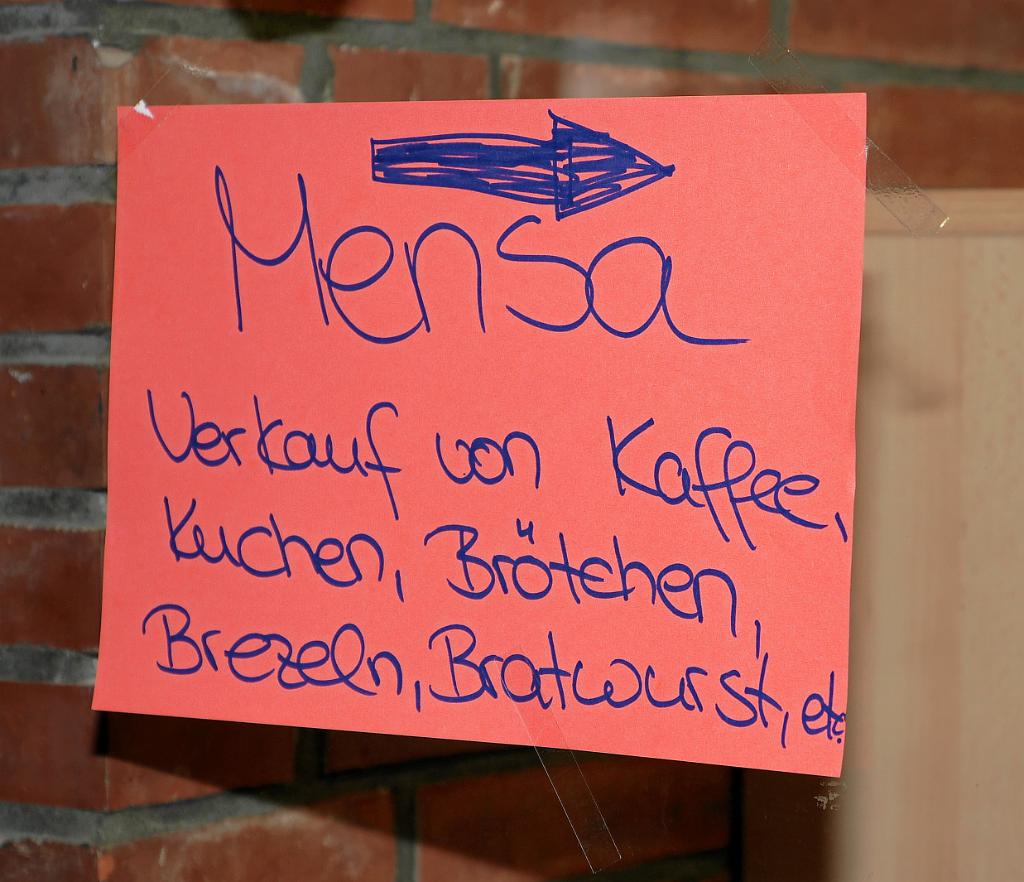 Mensa
Verkauf von Kaffee,
Kuchen, Brötchen,
Brezeln, Bratwurst, etc.